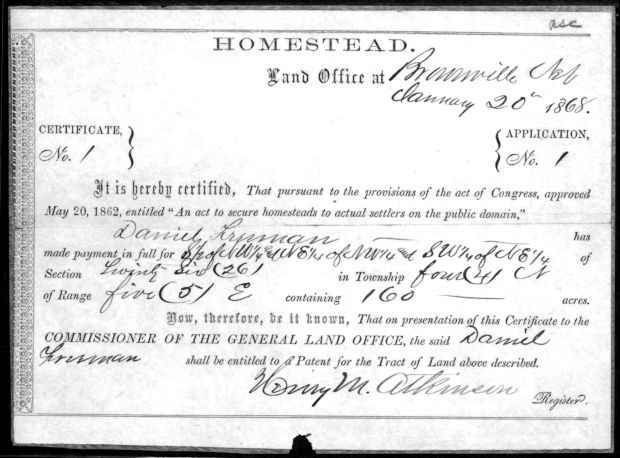 HOMESTEAD.
Land Office at Brownville Neb
January 20th 1868.
CERTIFICATE,
No. 1
APPLICATION,
No. 1
It is hereby certified, That pursuant to the provisions of the act of Congress, approved
May 20, 1862, entitled "An act to secure homesteads to actual settlers on the public domain,"
Daniel Freeman has
made payment in full for S½ of NW¼ & NE¼ of NW¼ and SW¼ of NE¼ of
Section Twenty Six (26) in Township four (4) N
of Range five (5) E containing 160 acres.
Now, therefore, be it known, That on presentation of this Certificate to the
COMMISSIONER OF THE GENERAL LAND OFFICE, the said Daniel
Freeman shall be entitled to a Patent for the Tract of Land above described.
Henry M. Atkinson
Register.